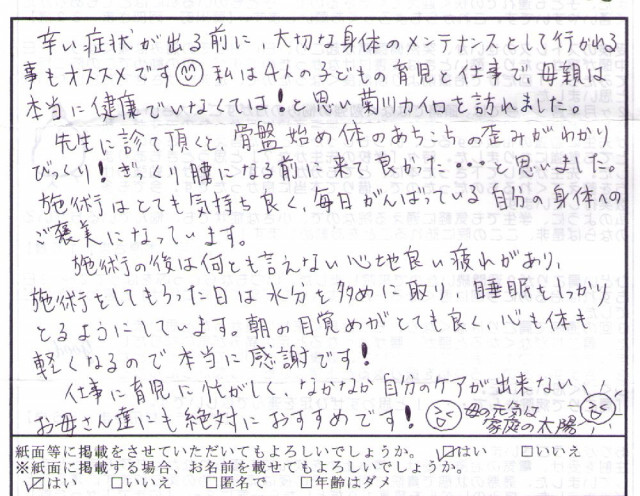 辛い症状が出る前に、大切な身体のメンテナンスとして行かれる
事もオススメです 私は4人の子どもの育児と仕事で、母親は
本当に健康でいなくては!と思い菊川カイロを訪れました。
先生に診て頂くと、骨盤始め体のあちこちの歪みがわかり
びっくり!ぎっくり腰になる前に来て良かった・・・と思いました。
施術はとても気持ち良く、毎日がんばっている自分の身体への
ご褒美になっています。
施術の後は何とも言えない心地良い疲れがあり、
施術をしてもらった日は水分を多めに取り、睡眠もしっかり
とるようにしています。朝の目覚めがとても良く、心も体も
軽くなるので本当に感謝です!
仕事に育児に忙がしく、なかなか自分のケアが出来ない
お母さん達にも絶対におすすめです! 母の元気は
家庭の太陽
紙面等に掲載をさせていただいてもよろしいでしょうか。 ☑はい □いいえ
※紙面に掲載する場合、お名前を載せてもよろしいでしょうか。
☑はい □いいえ □匿名で □年齢はダメ